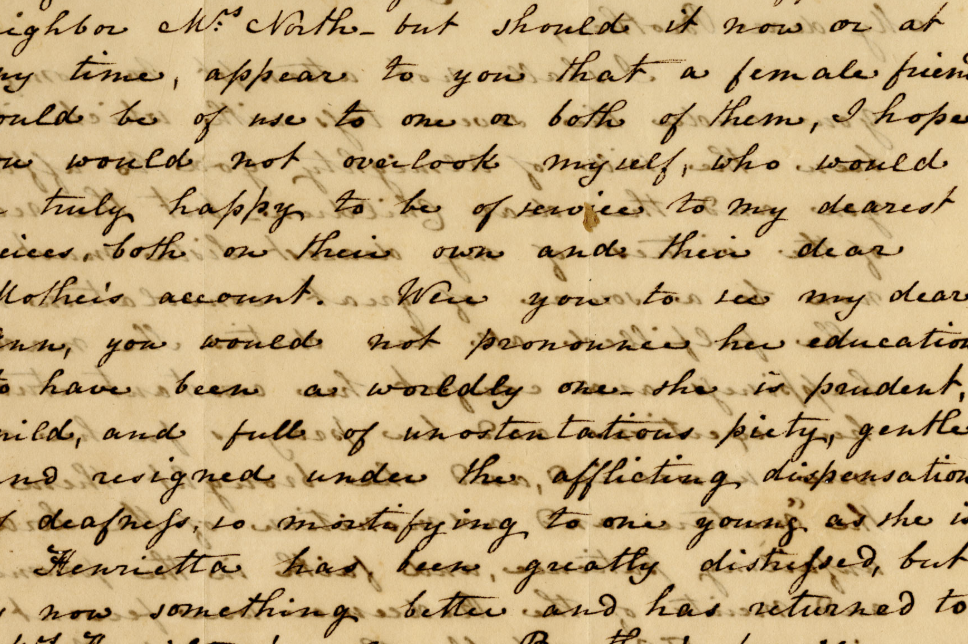 ighbor Mrs North - but should it now or at
ny time, appear to you that a female frien
ould be of use to one or both of them, I hope
ou would not overlook myself, who would
truly happy to be of service to my dearest
eices, both on their own and their dear
Mother's account. Were you to see my dear
nn, you would not pronounce her education
to have been a worldly one - she is prudent,
mild, and full of unostentatious piety, gentle
and resigned under the afflicting dispensation
f deafness, so mortifying to one young as she is
Henrietta has been greatly distressed, but
s now something better and has returned to